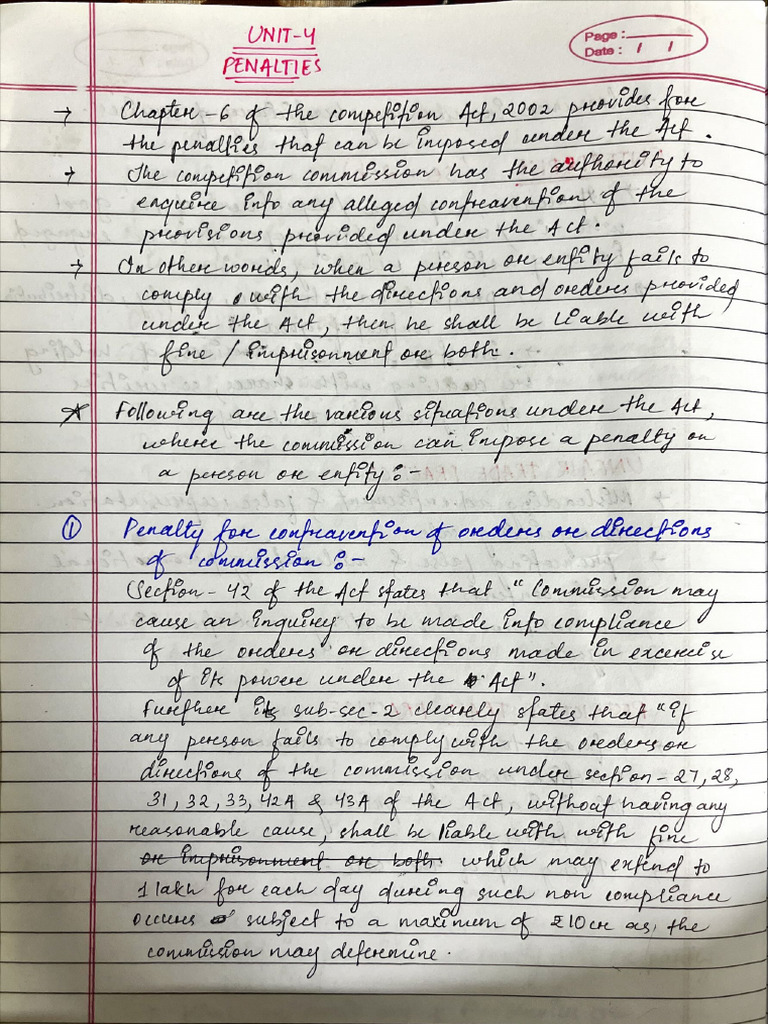 UNIT-4
PENALTIES
Page :
Date : / /
→ Chapter-6 of the competition Act, 2002 provides for
the penalties that can be imposed under the Act.
→ The competition commission has the authority to
enquire into any alleged contravention of the
provisions provided under the Act.
→ In other words, when a person or entity fails to
comply with the directions and orders provided
under the Act, then he shall be liable with
fine / imprisonment or both.
* Following are the various situations under the Act,
where the commission can impose a penalty on
a person or entity :-
① Penalty for contravention of orders or directions
of commission :-
Section-42 of the Act states that "Commission may
cause an inquiry to be made into compliance
of the orders or directions made in excercise
of its power under the Act".
Further its sub-sec-2 clearly states that "if
any person fails to comply with the orders or
directions of the commission under section-27, 28,
31, 32, 33, 42A & 43A of the Act, without having any
reasonable cause, shall be liable with with fine
or imprisonment or both. which may extend to
1 lakh for each day during such non compliance
occurs subject to a maximum of ₹10cr as the
commission may determine.